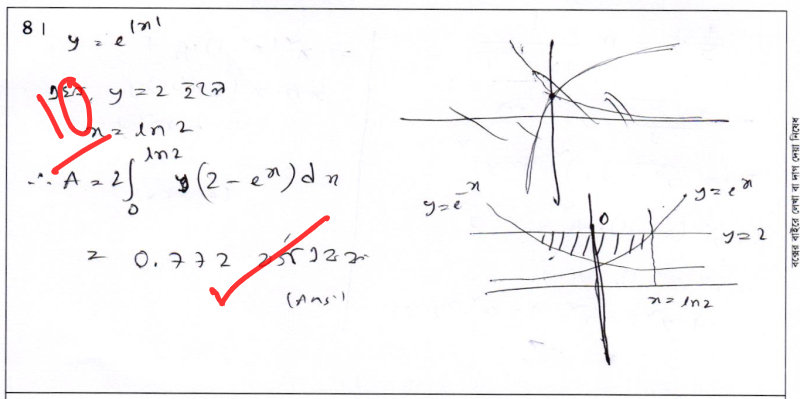 8।
y = e^|x|
10
এখন, y = 2 হলে
x = ln 2
∴ A = 2∫₀^ln2 (2 - e^x) dx
= 0.772 বর্গ একক
(Ans.)
y = e^-x
0
y = e^x
y = 2
x = ln 2
বক্সের বাইরে লেখা বা দাগ দেয়া নিষেধ